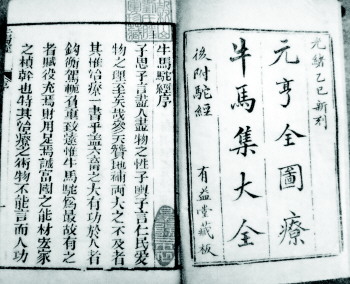 光緒乙巳新刊
元亨全圖療
牛馬集大全
後附駝經
有益堂藏板
牛馬駝經序
子思子言盡人盡物之性子輿子言仁民愛
物之理至矣哉參天贊地補兩大之不及者
其惟治療一書乎蓋六畜之大有功於人者
駕輓引重致遠惟牛馬駝爲最故有之
者賦役充焉財用足焉誠富國之能材宏家
之楨幹也特其治療之術物不能言而人功